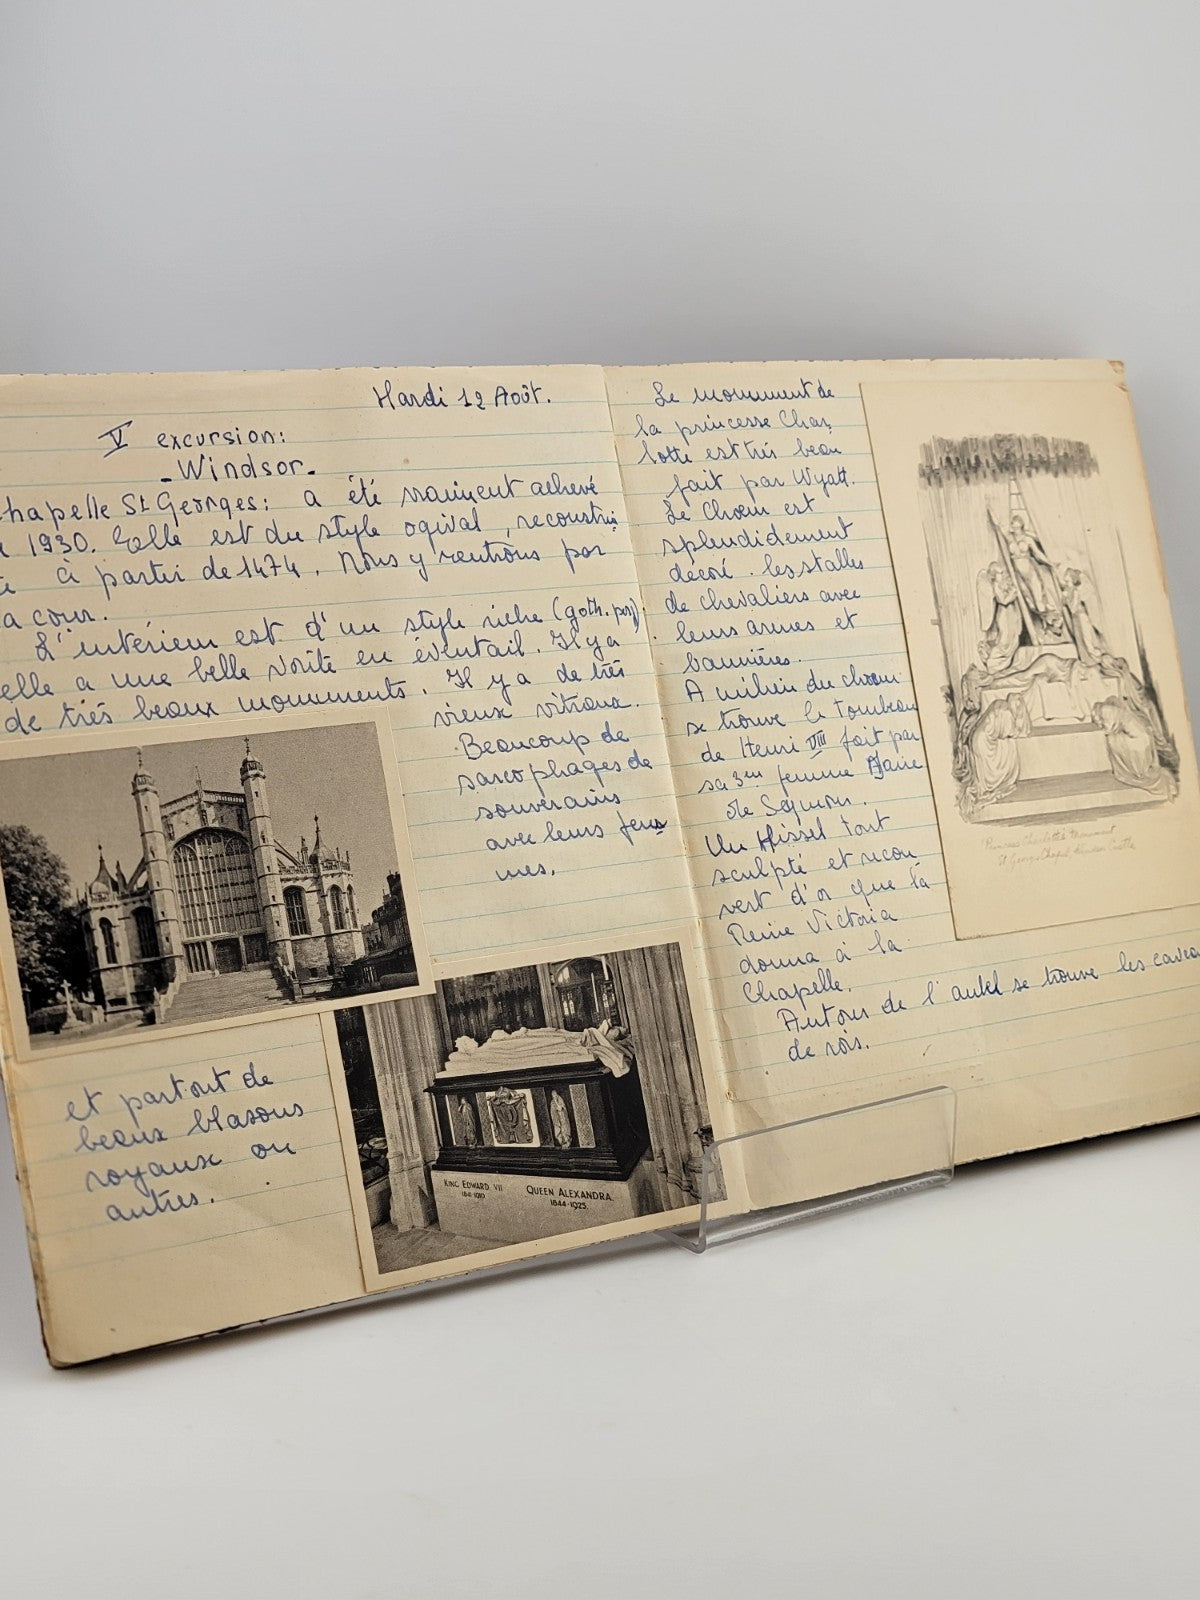 Mardi 12 Août.
V excursion:
- Windsor -
hapelle St Georges: a été vraiment achevé
1930. Elle est du style ogival, reconstrui
à partir de 1474. Nous y rentrons par
a cour.
L'intérieur est d'un style riche (goth. per).
elle a une belle voûte en éventail. Il y a
de très beaux monuments. Il y a de très
vieux vitraux.
Beaucoup de
sarcophages de
souverains
avec leurs fem
mes.
et partout de
beaux blasons
royaux ou
autres.
KING EDWARD VII
1841-1910
QUEEN ALEXANDRA.
1844-1925.
Le monument de
la princesse Char
lotte est très beau
fait par Wyatt.
Le Chœur est
splendidement
décoré. les stalles
de chevaliers avec
leurs armes et
bannières.
A milieu du chœur
se trouve le tombeau
de Henri VIII fait par
sa 3em femme Jane
de Seymour.
Un Missel tout
sculpté et recou
vert d'or que la
Reine Victoria
donna à la
Chapelle.
Autour de l'autel se trouve les caveau
de rois.
Princess Charlotte's Monument
St George's Chapel, Windsor Castle